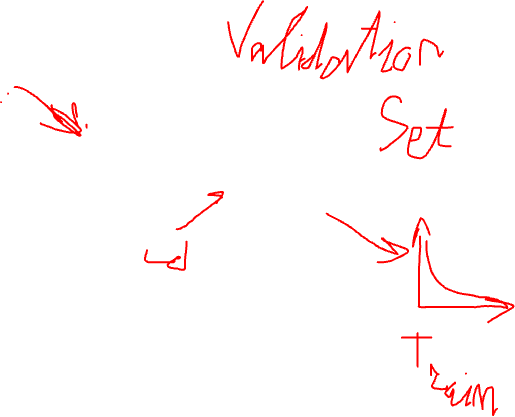 Validation
Set
Train